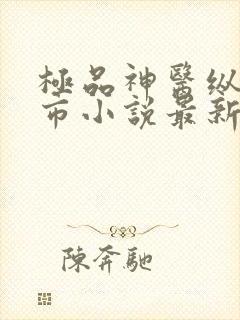 極品神醫纵
市小說最新
陳奔馳